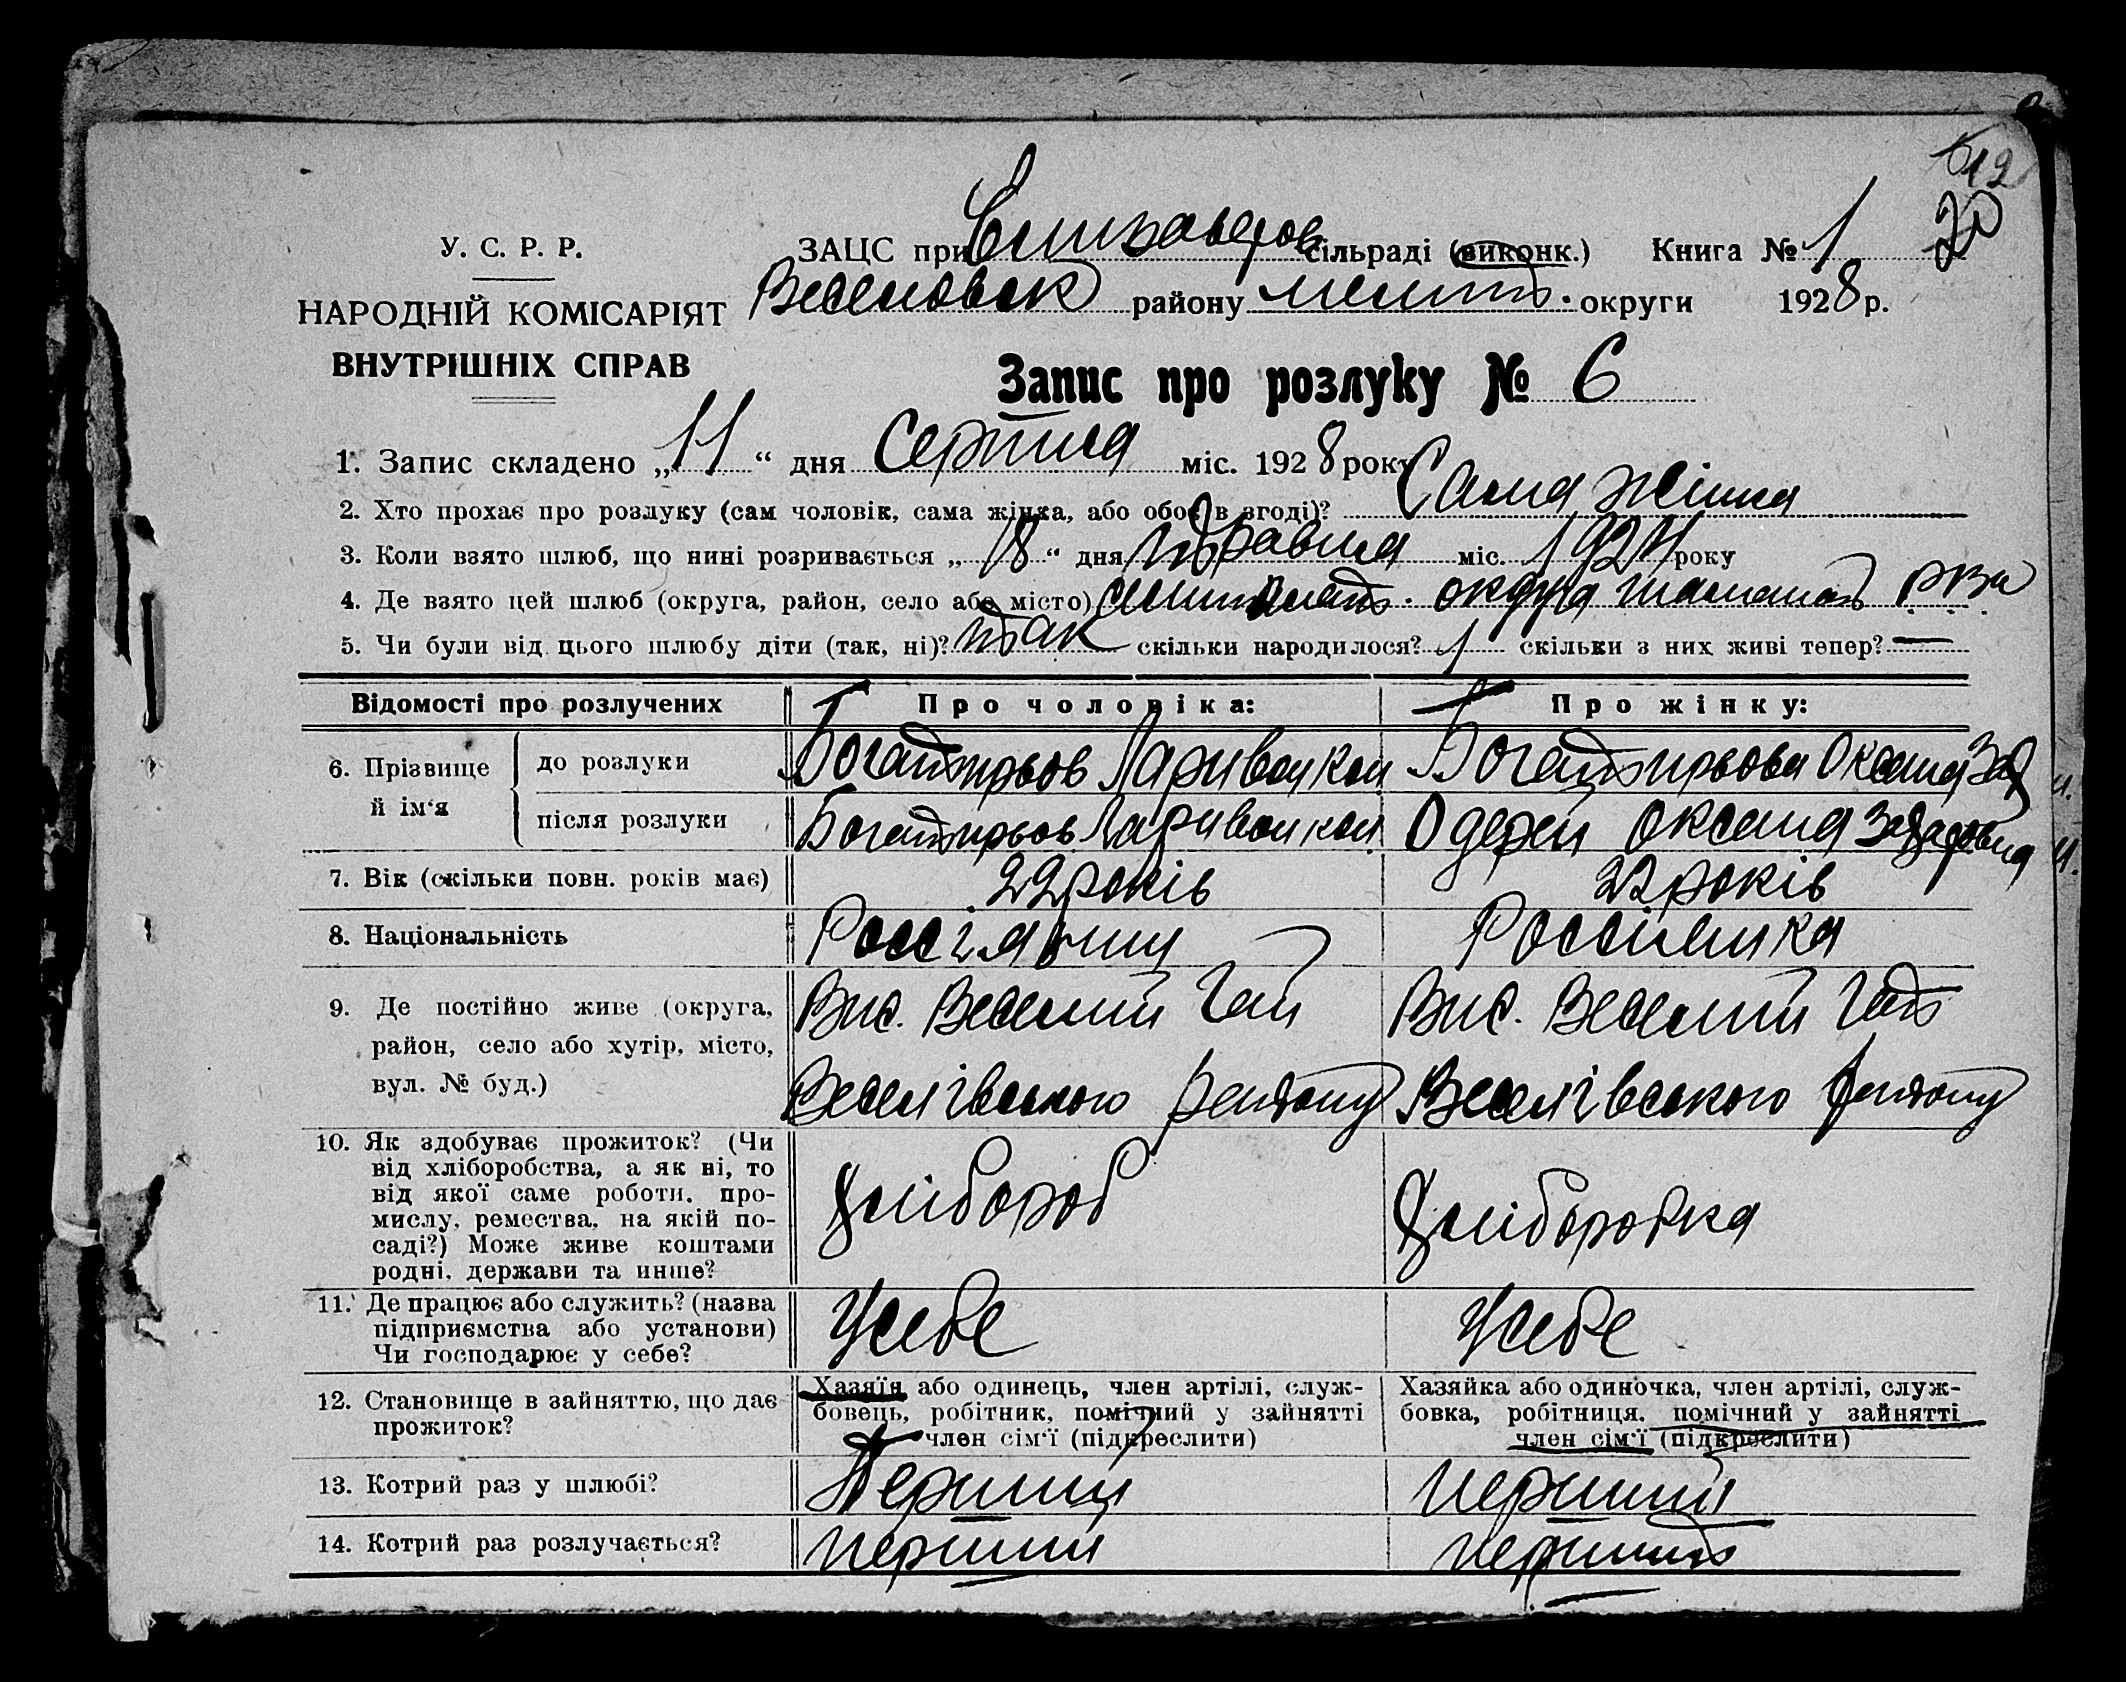 12
20
У. С. Р. Р.
ЗАЦС при Єлизаветов сільраді (виконк.) Книга № 1
НАРОДНІЙ КОМІСАРІЯТ
Веселовськ району Меліт. округи 1928 р.
ВНУТРІШНІХ СПРАВ
Запис про розлуку № 6
1. Запис складено „11“ дня Серпня міс. 1928 року
2. Хто прохає про розлуку (сам чоловік, сама жінка, або обоє в згоді)? Сама жінка
3. Коли взято шлюб, що нині розривається „18“ дня травня міс. 1924 року
4. Де взято цей шлюб (округа, район, село або місто) округа
5. Чи були від цього шлюбу діти (так, ні)? так скільки народилося? 1 скільки з них живі тепер? —
Відомості про розлучених Про чоловіка: Про жінку:
6. Прізвище й ім‘я
до розлуки Богатирьов Ларивон Богатирьова Оксана Зах
після розлуки Богатирьов Ларивон Одерей Оксана Захаровна
7. Вік (скільки повн. років має) 22 років 22 років
8. Національність Россіянин Россиянка
9. Де постійно живе (округа, Вис. Веселий Гай Вис. Веселий Гай
район, село або хутір, місто,
вул. № буд.) Веселівського району Веселівського району
10. Як здобуває прожиток? (Чи
від хліборобства, а як ні, то
від якої саме роботи, про-
мислу, ремества, на якій по-
саді?) Може живе коштами
родні, держави та инше?
Хлібороб Хліборобка
11. Де працює або служить? (назва
підприємства або установи)
Чи господарює у себе?
У себе У себе
12. Становище в зайняттю, що дає
прожиток?
Хазяїн або одинець, член артілі, служ-
бовець, робітник, помічний у зайнятті
член сім‘ї (підкреслити)
Хазяйка або одиночка, член артілі, служ-
бовка, робітниця, помічний у зайнятті
член сім‘ї (підкреслити)
13. Котрий раз у шлюбі? Перший перший
14. Котрий раз розлучається? перший перший